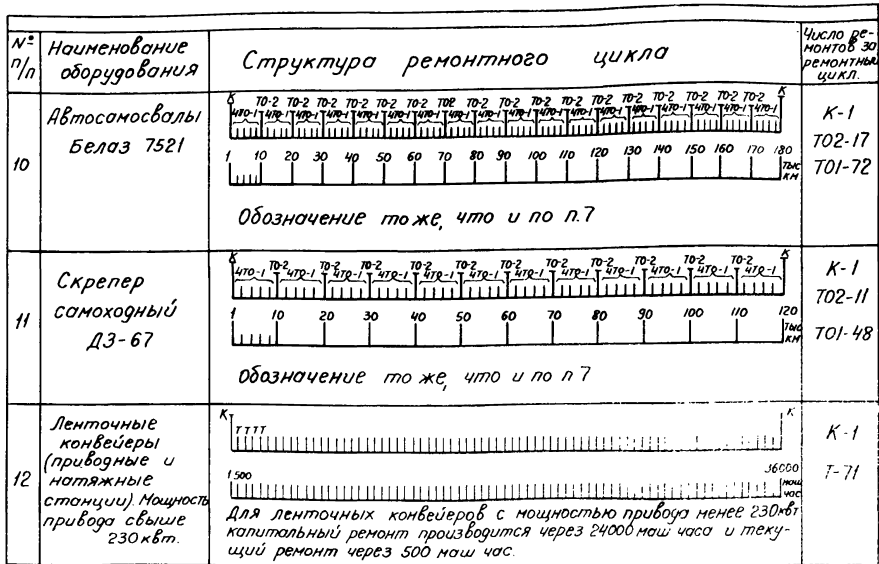 № п/п
Наименование оборудования
Структура ремонтного цикла
Число ре-
монтов за
ремонтный
цикл.
10
Автосамосвалы
Белаз 7521
К ТО-2 ТО-2 ТО-2 ТО-2 ТО-2 ТО-2 ТО-2 ТО-2 ТО-2 ТО-2 ТО-2 ТО-2 ТО-2 ТО-2 ТО-2 ТО-2 ТО-2 К
4ТО-1 4ТО-1 4ТО-1 4ТО-1 4ТО-1 4ТО-1 4ТО-1 4ТО-1 4ТО-1 4ТО-1 4ТО-1 4ТО-1 4ТО-1 4ТО-1 4ТО-1 4ТО-1 4ТО-1
1 10 20 30 40 50 60 70 80 90 100 110 120 130 140 150 160 170 180
тыс км
Обозначение то же, что и по п.7
К-1
ТО2-17
ТО1-72
11
Скрепер
самоходный
ДЗ-67
К ТО-2 ТО-2 ТО-2 ТО-2 ТО-2 ТО-2 ТО-2 ТО-2 ТО-2 ТО-2 ТО-2 К
4ТО-1 4ТО-1 4ТО-1 4ТО-1 4ТО-1 4ТО-1 4ТО-1 4ТО-1 4ТО-1 4ТО-1 4ТО-1 4ТО-1
1 10 20 30 40 50 60 70 80 90 100 110 120
тыс км
Обозначение то же, что и по п 7
К-1
ТО2-11
ТО1-48
12
Ленточные
конвейеры
(приводные и
натяжные
станции). Мощность
привода свыше
230 квт.
К Т Т Т Т К
1 500 36000
маш час
Для ленточных конвейеров с мощностью привода менее 230 квт
капитальный ремонт производится через 24000 маш часа и теку-
щий ремонт через 500 маш час.
К-1
Т-71